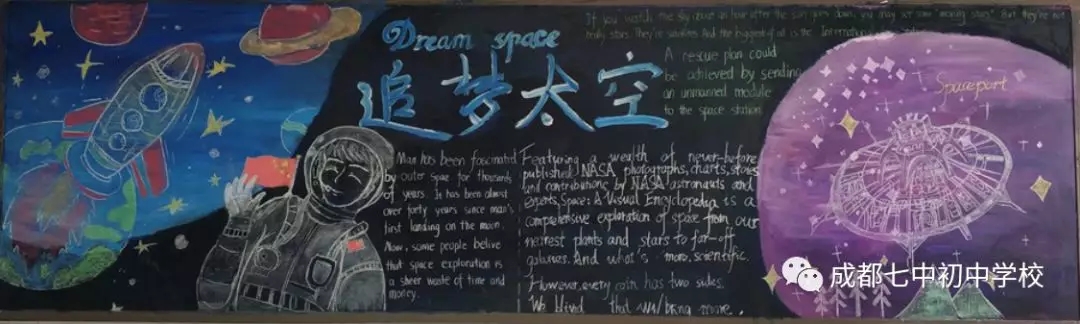 Dream space
追梦太空
If you watch the sky about an hour after the sun goes down, you may see some "moving stars". But they're not
really stars. They're satellites. And the biggest of all is the International
A rescue plan could
be achieved by sending
an unmanned module
to the space station
Man has been fascinated
by outer space for thousands
of years. It has been almost
over forty years since man's
first landing on the moon.
Now, some people belive
that space exploration is
a sheer waste of time and
money.
Featuring a wealth of never-before
published NASA photographs, charts, stories
and contributions by NASA astronauts and
experts, Space: A Visual Encyclopedia is a
comprehensive exploration of space from our
nearest plants and stars to far-off
galaxies. And what's more, scientific.
However, every coin has two sides.
We that will bring more.
Spaceport
成都七中初中学校